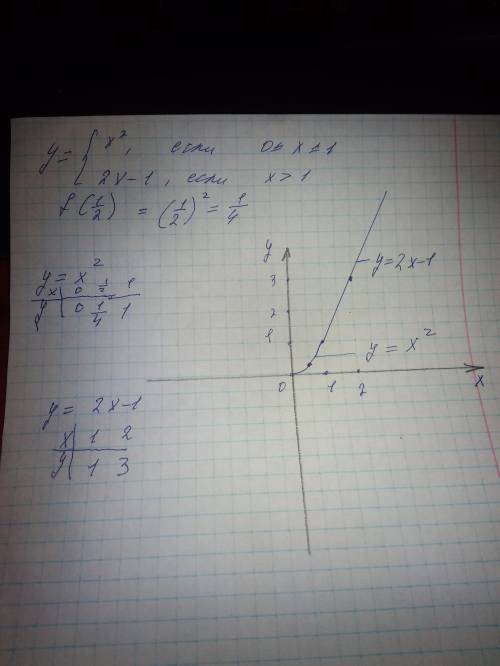 y = { x², если 0 ≤ x ≤ 1
2x-1, если x > 1
f(1/2) = (1/2)² = 1/4
y = x²
x | 0 1/2 1
y | 0 1/4 1
y = 2x-1
x | 1 2
y | 1 3
y
3
2
1
0
1
2
x
y=2x-1
y = x²